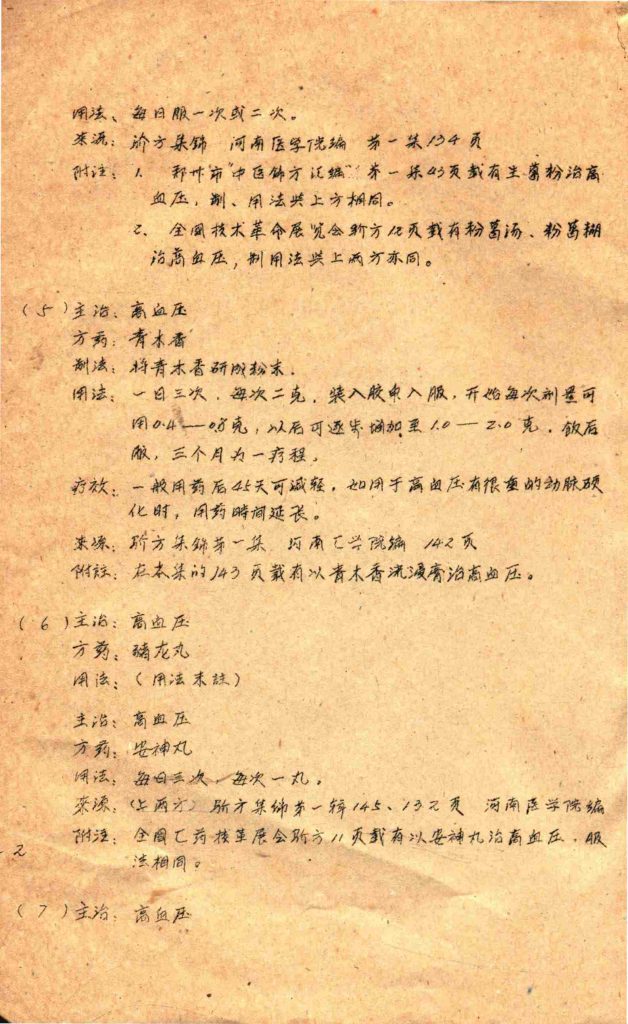 用法、每日服一次或二次。
来源：验方集锦 河南医学院编 第一集134页
附注：1. 郑州市"中医锦方汇编"第一集43页载有生葛粉治高
血压，制、用法共上方相同。
2、全国技术革命展览会验方12页载有粉葛汤、粉葛糊
治高血压，制用法共上两方亦同。
（5）主治：高血压
方药：青木香
制法：将青木香研成粉末。
用法：一日三次，每次二克，装入胶中入服，开始每次剂量可
用0.4—0.8克，以后可逐步增加至1.0—2.0克，饭后
服，三个月为一疗程。
疗效：一般用药后45天可减轻，如用于高血压有很重的动脉硬
化时，用药时间延长。
来源：验方集锦第一集 河南亡学院编 142页
附註：在本集的143页载有以青木香流浸膏治高血压。
（6）主治：高血压
方药：猪龙丸
用法：（用法未註）
主治：高血压
方药：安神丸
用法：每日三次，每次一丸。
来源：（上两方）验方集锦第一辑145、132页 河南医学院编
附注：全国亡药技革展会验方11页载有以安神丸治高血压，服
法相同。
2
（7）主治：高血压